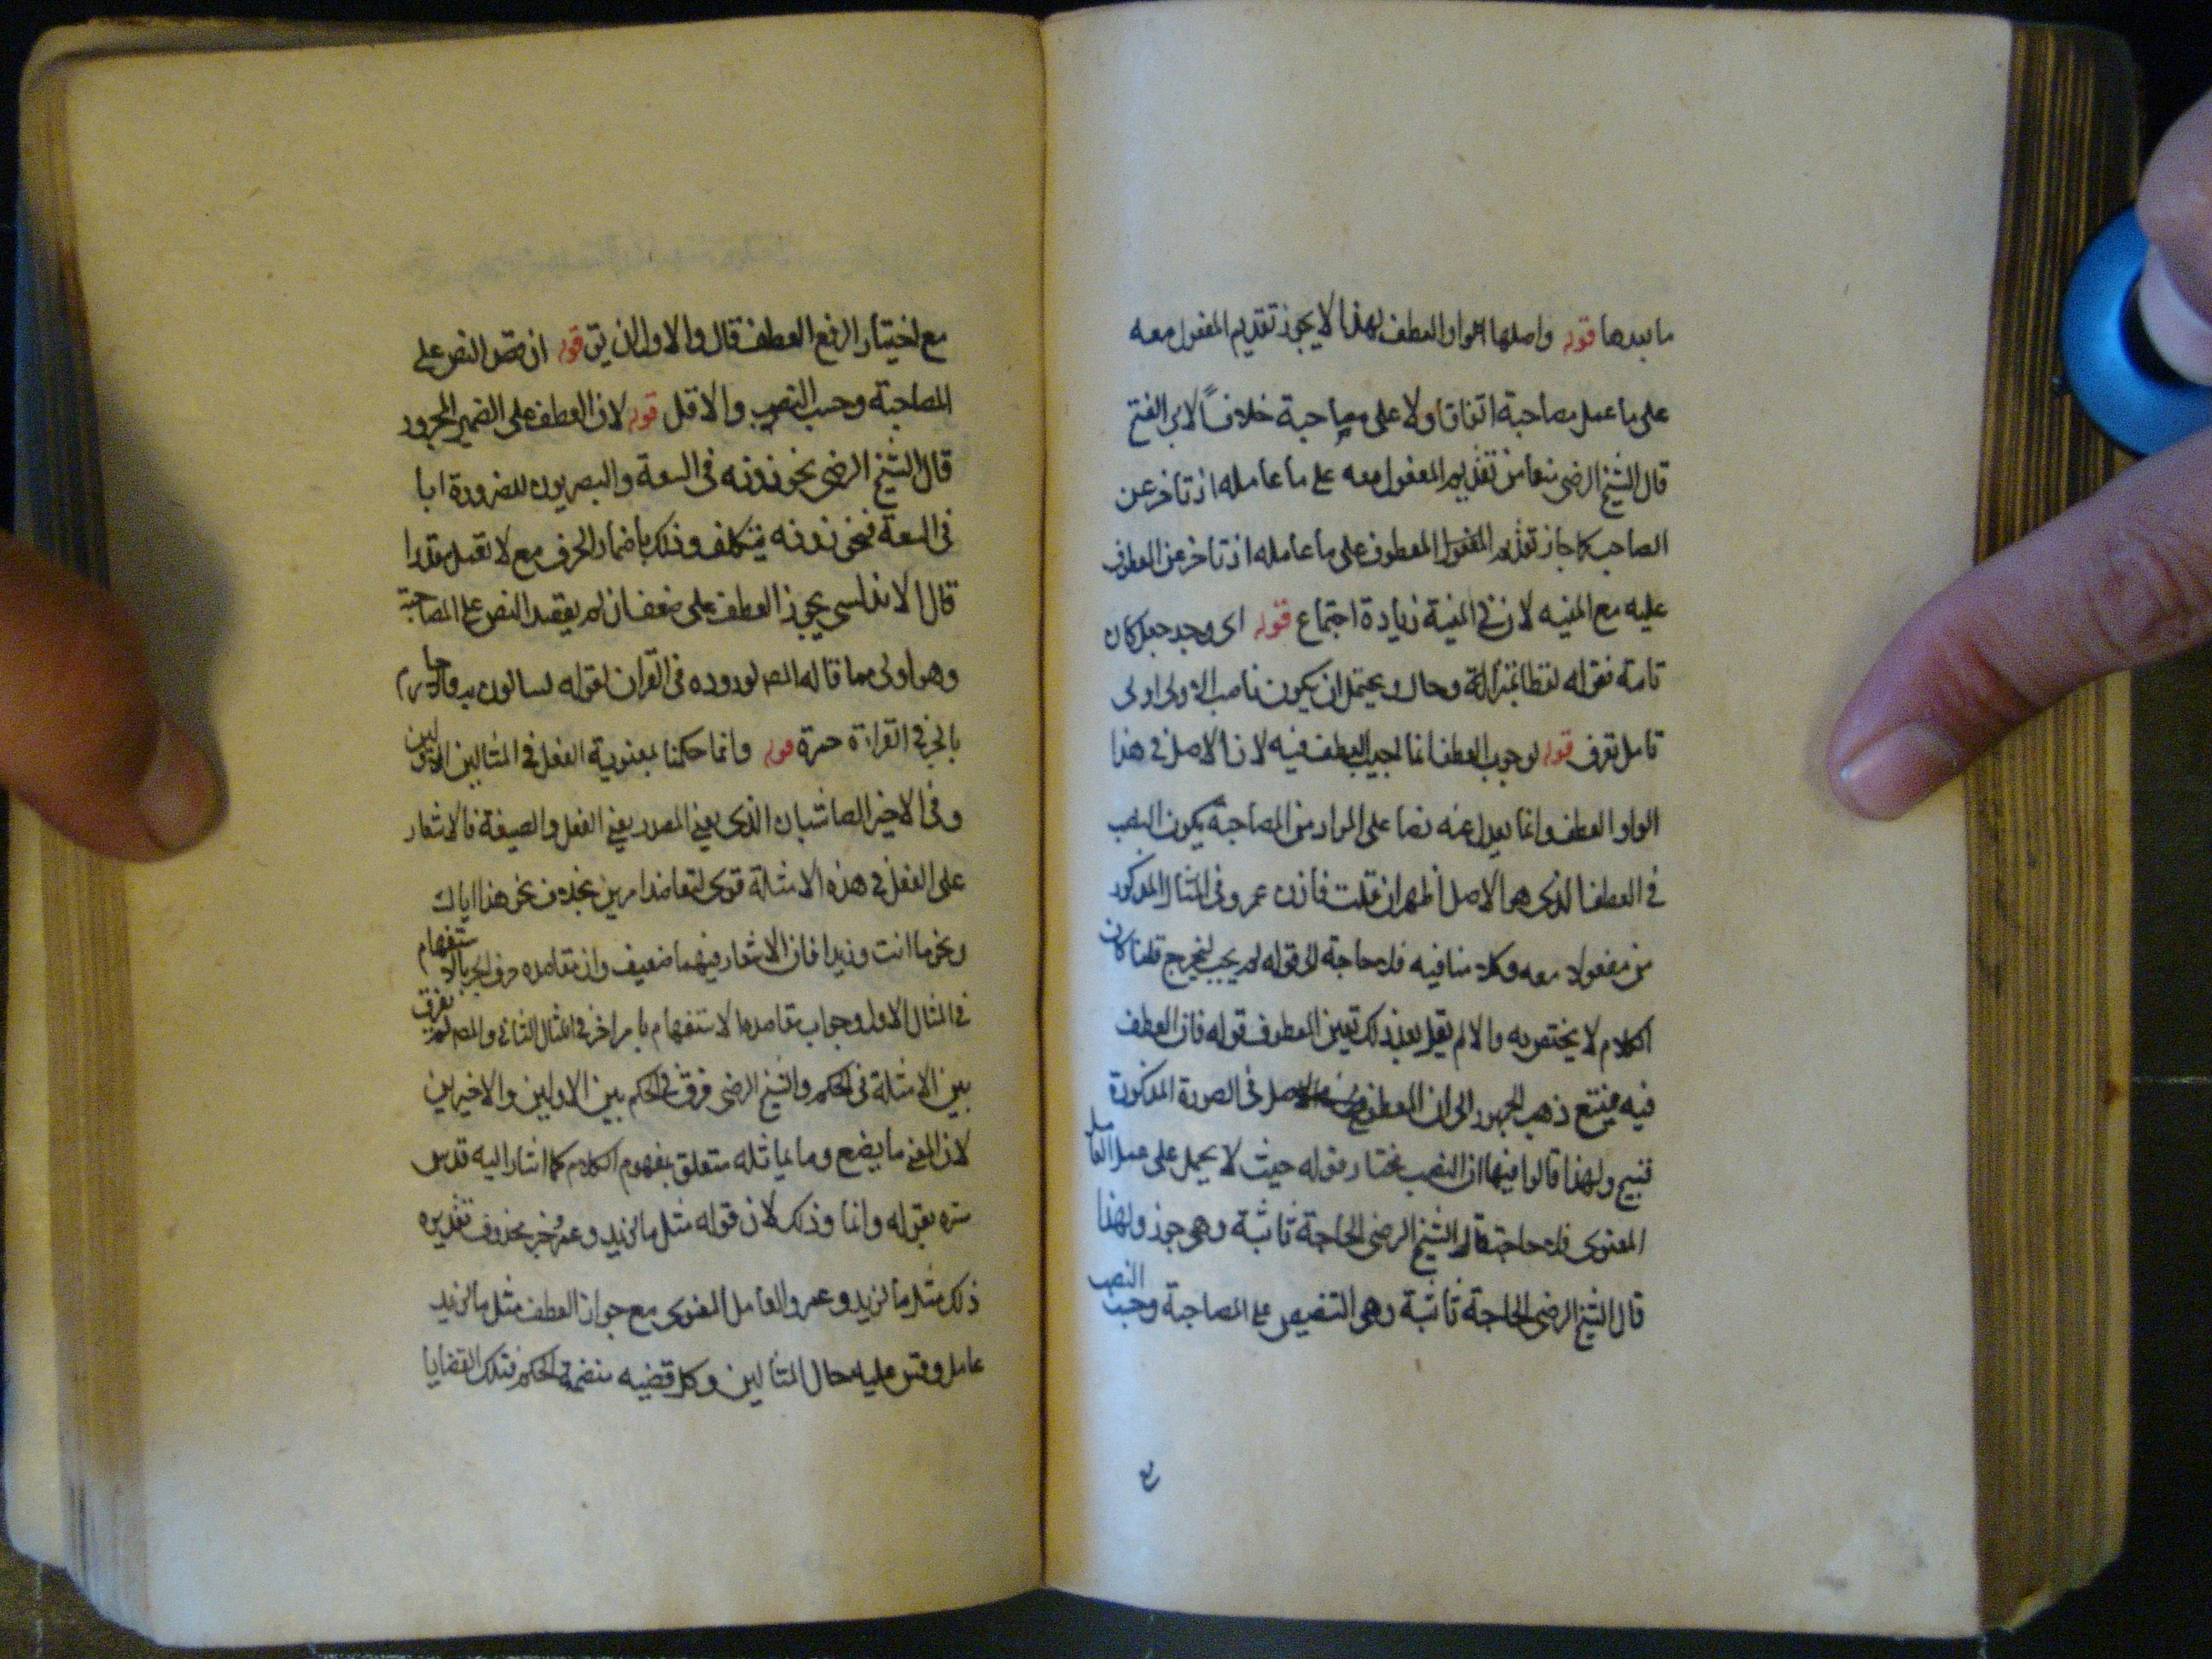 ما بعدها قوله واصلها الواو العطف لهذا لا يجوز تقديم المفعول معه
على ما عمل مصاحبة اتفاقا ولا على مصاحبة خلافاً لابى الفتح
قال الشيخ الرضى منعا من تقديم المفعول معه على ما عامله اذ تاخر عن
الصاحب كما جاز تقديم المعطوف على ما عامله اذ تاخر عن المعطوف
عليه مع المنيه لان فى المنية زيادة اجتماع قوله اى وجد جعل كان
تامة فقوله لفظا بمنزلة وحال ويحتمل ان يكون ناصب الاولى اولى
تامل تعرف قوله لوجوب العطف انما لجيب العطف فيه لان الاصل فى هذا
الواو العطف وانما يعدل عنه نصا على المراد من المصاحبة يكون النصب
فى العطف الذى هو الاصل اظهر ان قلت فاذن عمرو فى المثال المذكور
من مفعولا معه وكلامنا فيه فلا حاجة الى قوله لم يجب ليخرج قلنا كان
الكلام لا يختص به والا لم يقل بعد ذلك تعين المعطوف قوله فان العطف
فيه ممتنع ذهب الجمهور الى ان العطف فى الصورة المذكورة
قبيح ولهذا قالوا فيها ان النصب مختار قوله حيث لا يحمل على عمل العامل
المعنوى فلا حاجة قال الشيخ الرضى الحاجة ثابتة وهى جوز ولهذا
قال الشيخ الرضى الحاجة ثابتة وهى التنصيص على المصاحبة وجب النصب
مع اختيار الرفع العطف قال والاولى ان يق قوله ان قصد النص على
المصاحبة وجب النصب والا قل قوله لان العطف على الضمير المجرور
قال الشيخ الرضى يجوزونه فى السعة والبصريون للضرورة اما
فى السعة فيجوزونه بتكلف وذلك باضمار الحرف مع لا تعمل مقدرا
قال الاندلسى يجوز العطف على ضعف ان لم يقصد النص على المصاحبة
وهو اولى مما قاله المص لوروده فى القرآن لقوله تسالون به والارحام
بالجر فى القراءة حمزة قوله وانما حكمنا بمعنوية الفعل فى المثالين الاولين
وفى الاخير الشان الذى يعنى المصدر يعنى الفعل والصيغة فالاشعار
على الفعل فى هذه الامثلة قوى لتعاضد امرين بخلاف نحو هذا اياك
ونحو ما انت وزيدا فان الاشعار فيهما ضعيف واذ تعاضده حرف الجر بالاستفهام
فى المثال الاول وجواب تعاضدها الاستفهام بامر اخر فى المثال الثانى والمص لم يفرق
بين الامثلة فى الحكم والشيخ الرضى فرق فى الحكم بين الاولين والاخيرين
لان المعنى ما يضع وما يماثله متعلق بمفهوم الكلام كما اشار اليه قدس
سره بقوله وانما وذلك لان قوله مثل ما لزيد وعمرو خبر محذوف تقديره
ذلك مثل ما لزيد وعمرو العامل المعنوى مع جواز العطف مثل ما لزيد
عامل وقس عليه حال المثالين وكل قضيه متضمنة الحكم فتلك القضايا